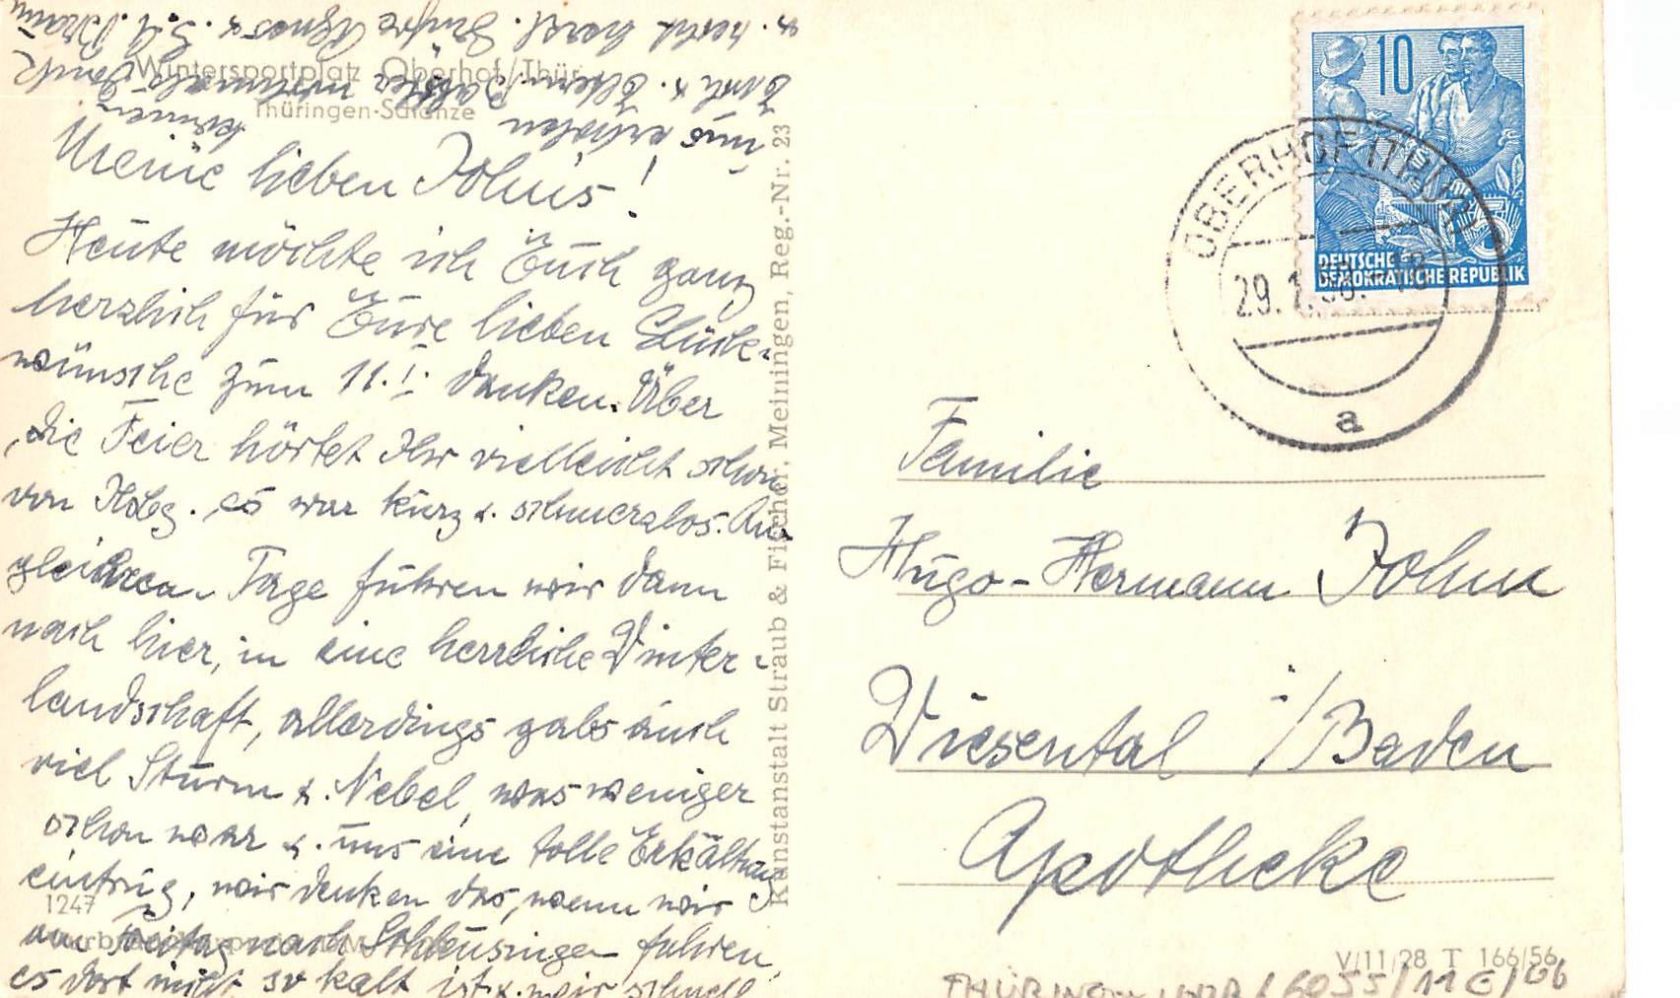 Wintersportplatz Oberhof/Thür.
Thüringen-Schanze
Meine lieben Johns!
Heute möchte ich Euch ganz
herzlich für Eure lieben Glück-
wünsche zum 11.I. danken. Über
die Feier hörtet Ihr vielleicht schon
von Hdbg., es war kurz u. schmerzlos. Am
gleichen Tage fuhren wir dann
nach hier, in eine herrliche Winter-
landschaft, allerdings gabs auch
viel Sturm u. Nebel, was weniger
schön war u. uns eine tolle Erkältung
eintrug, wir denken das, wenn wir
am Freitag nach Schleusingen fahren,
es dort nicht so kalt ist u. wir schnell
uns erholen können
u. Eltern
u. recht herzl. Grüße Agnes u.
1247
Kunstanstalt Straub & Fischer, Meiningen, Reg.-Nr. 23
10
DEUTSCHE
DEMOKRATISCHE REPUBLIK
OBERHOF (THÜR)
29.1.58.-18
a
Familie
Hugo-Hermann John
Wiesental i/Baden
Apotheke
V/11/28 T 166/56